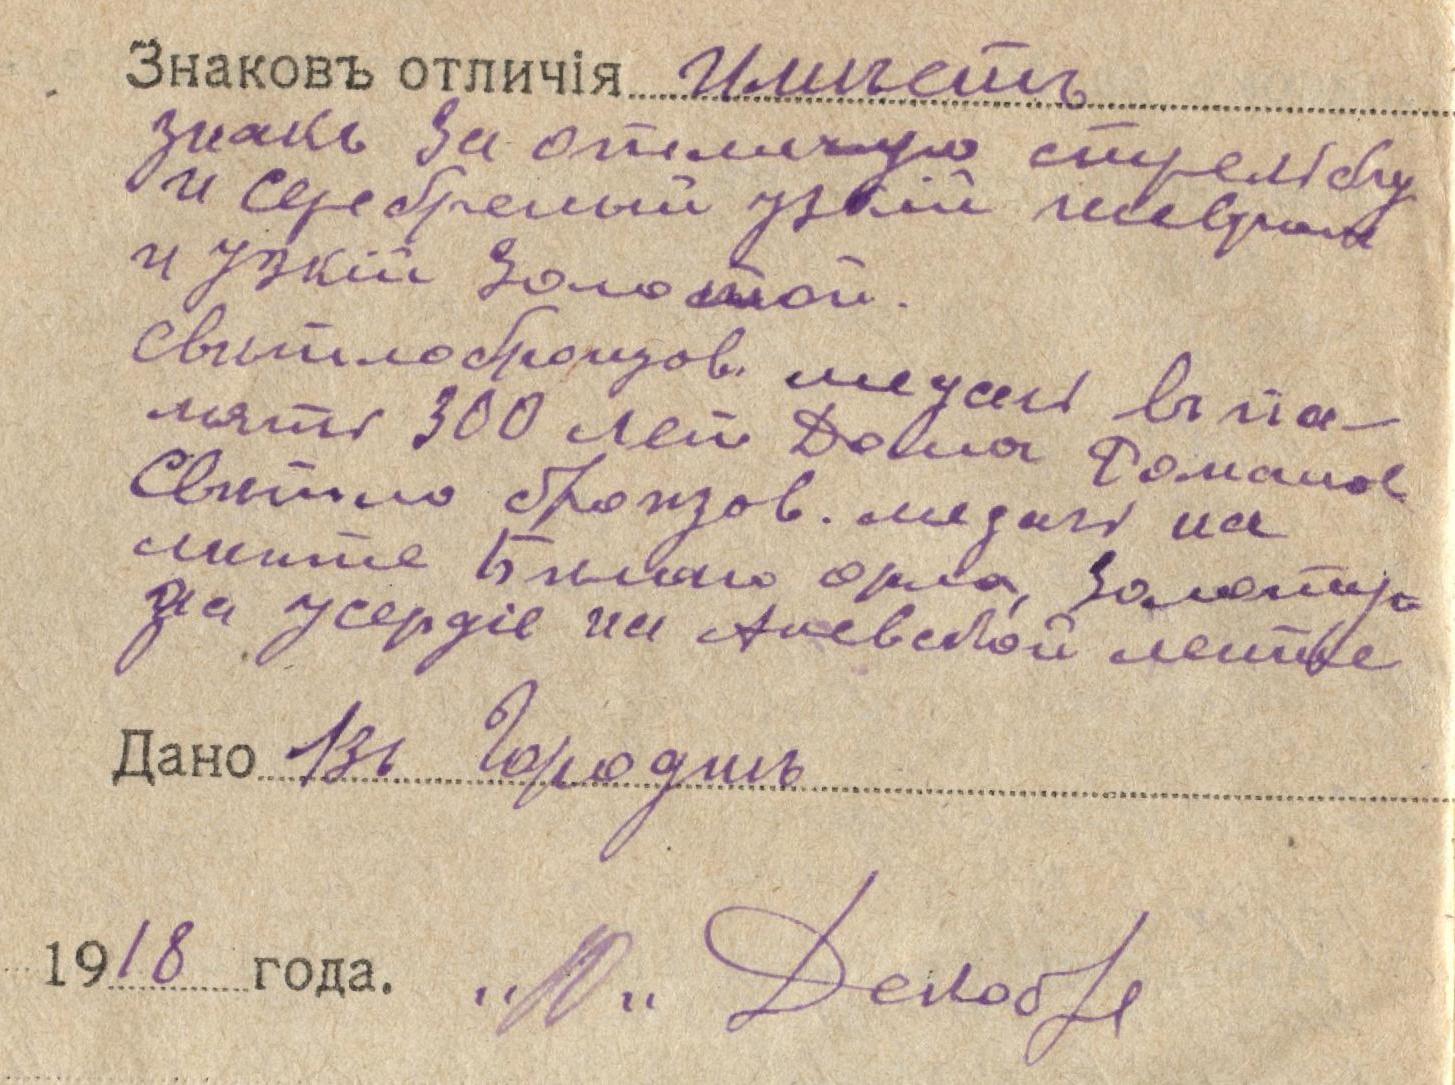 Знаковъ отличія имѣетъ
знакъ за отличную стрельбу
и серебреный узкій шеврон
и узкій золотой.
свѣтлобронзов. медаль въ па-
мять 300 лет Дома Романов
Свѣтло бронзов. медаль на
ленте Бѣлаго орла, золотую
за усердіе на Аневской ленте
Дано въ Городнѣ
1918 года. "10" Декабря